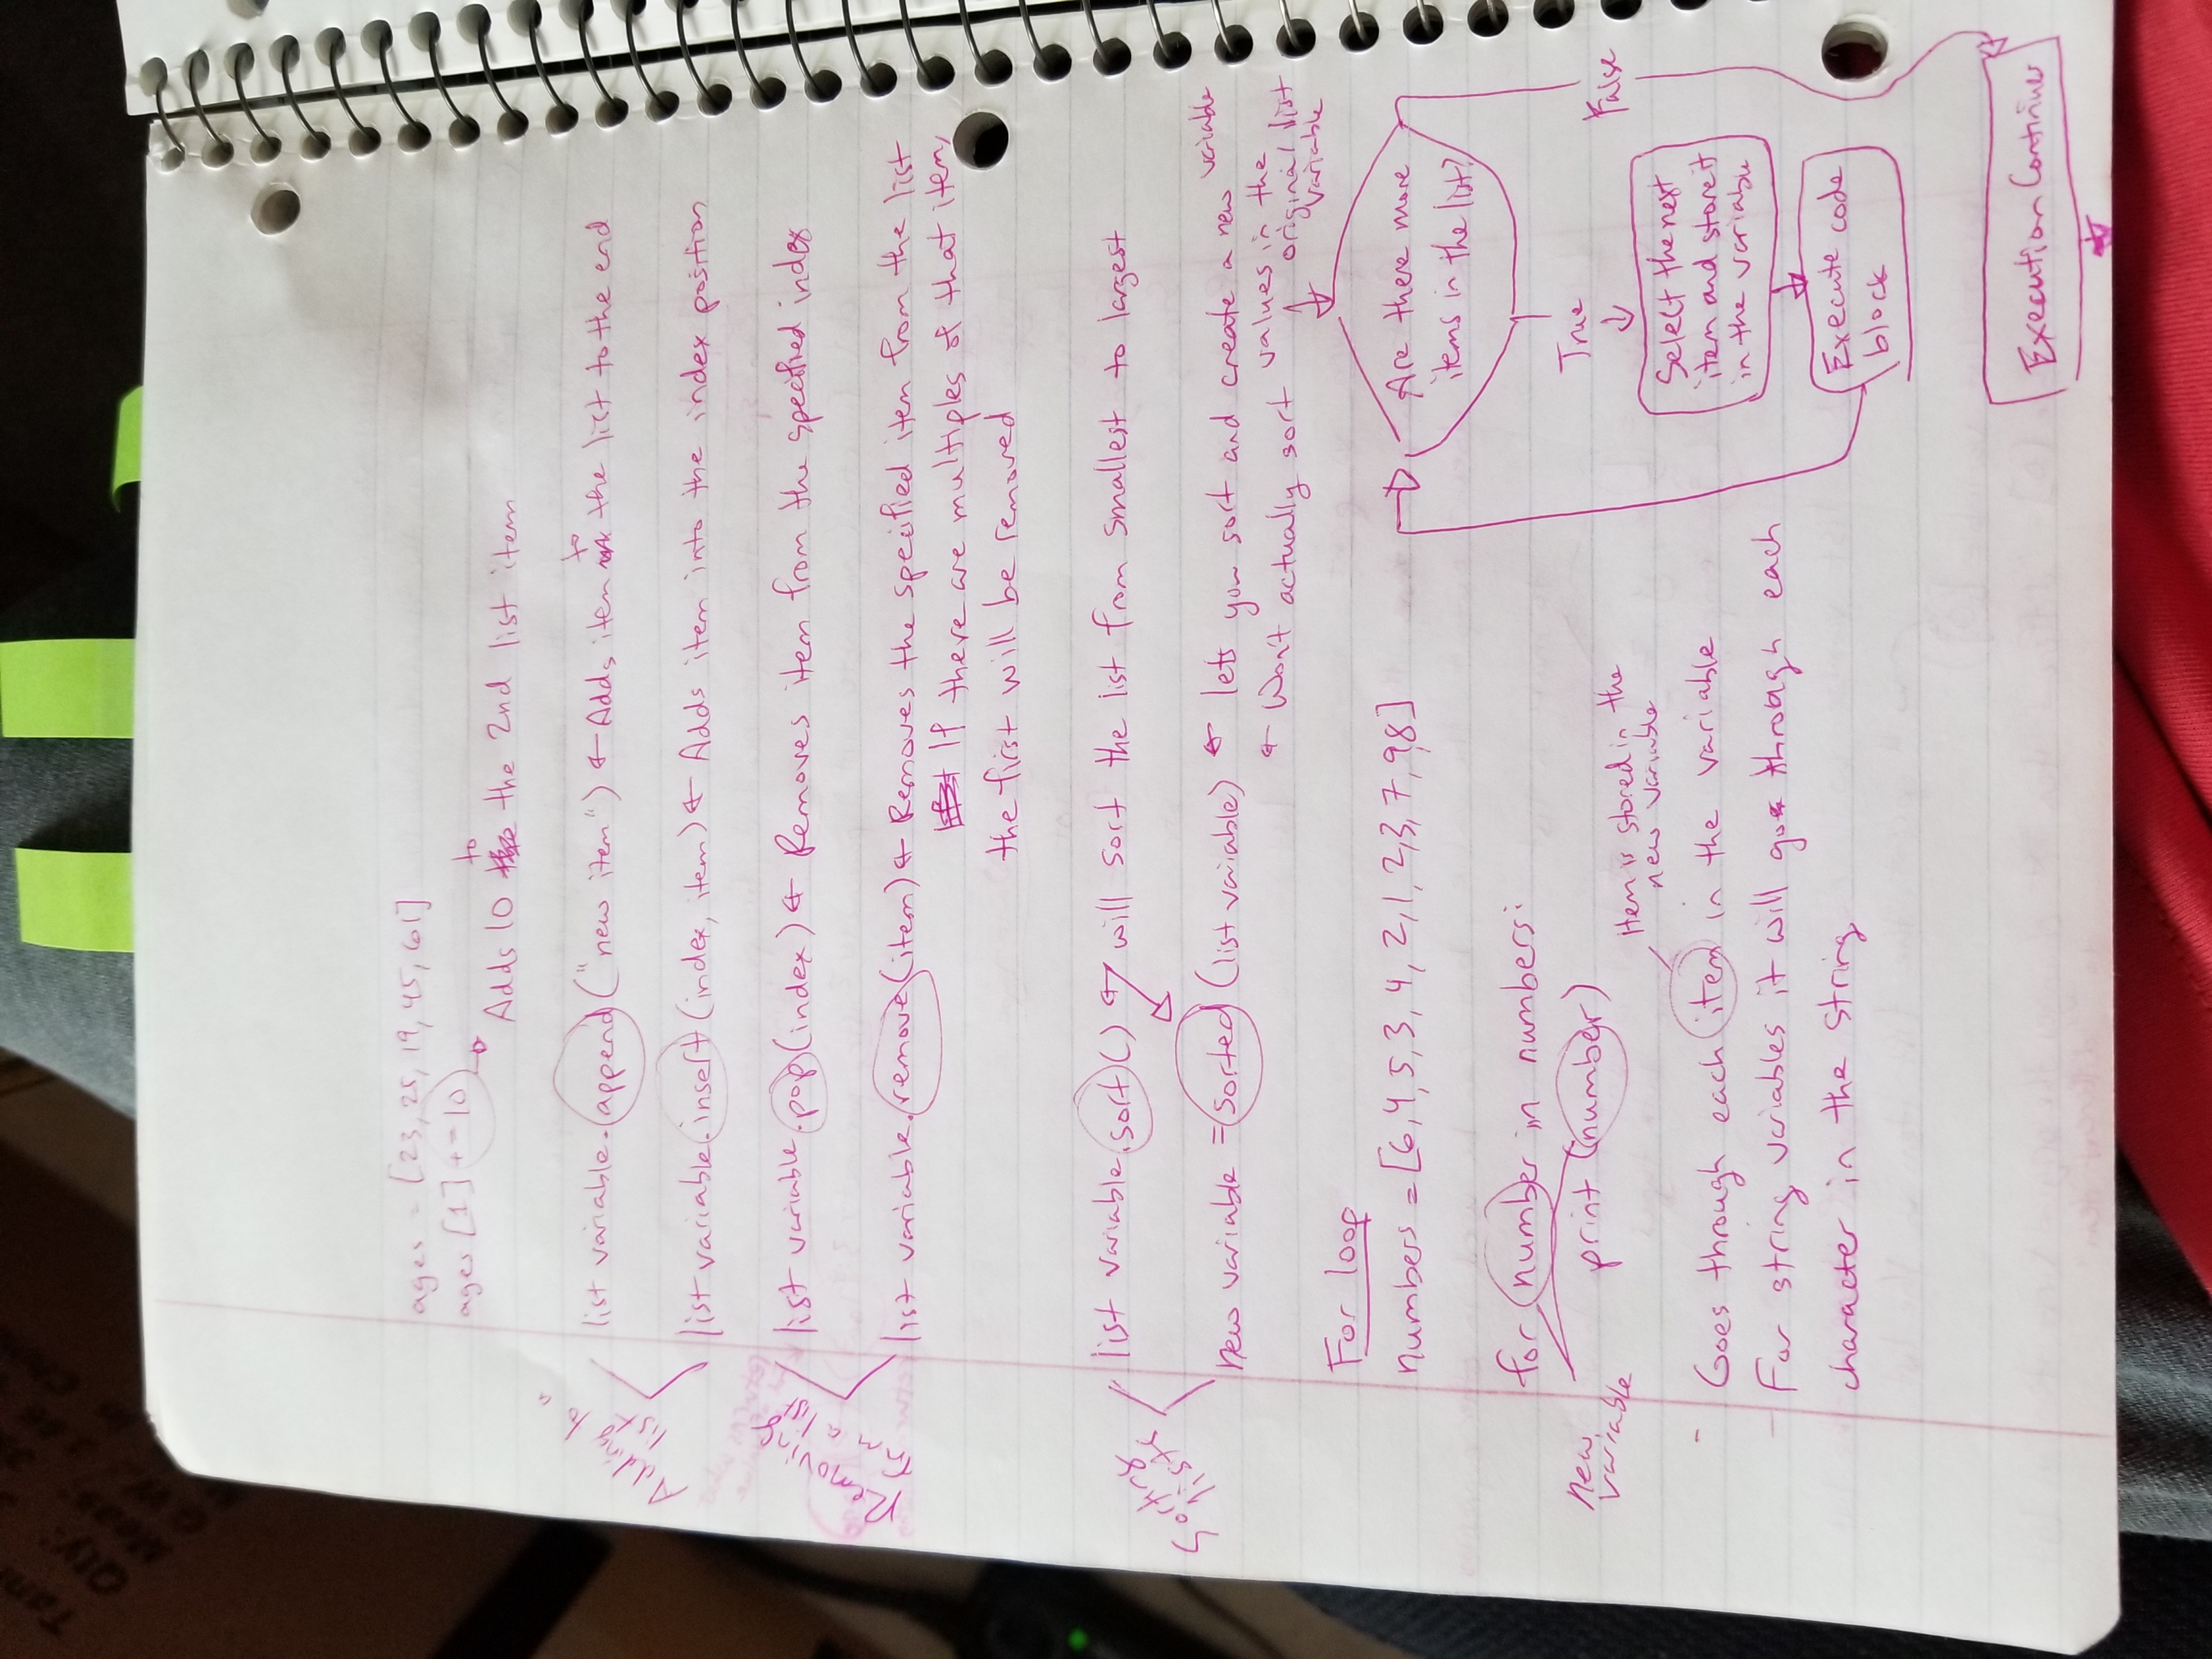 Qty:
Meas:
ages = [23, 25, 19, 45, 61]
ages [1] += 10
to
Adds 10 the 2nd list item
Adding to a
list
list variable.append ("new item") ← Adds item to the list to the end
list variable.insert (index, item) ← Adds item into the index position
Removing
from a list
list variable.pop (index) ← Removes item from the specified index
list variable.remove (item) ← Removes the specified item from the list
If there are multiples of that item,
the first will be removed
Sorting
lists
list variable.sort () ← will sort the list from smallest to largest
new variable = sorted (list variable) ← lets you sort and create a new variable
← Won't actually sort values in the
original list
variable
For loop
numbers = [6, 4, 5, 3, 4, 2, 1, 2, 3, 7, 9, 8]
for number in numbers:
print (number)
new
variable
Item is stored in the
new variable
- Goes through each item in the variable
- For string variables it will go through each
character in the string
Are there more
items in the list?
True
False
Select the next
item and store it
in the variable
Execute code
block
Execution Continues